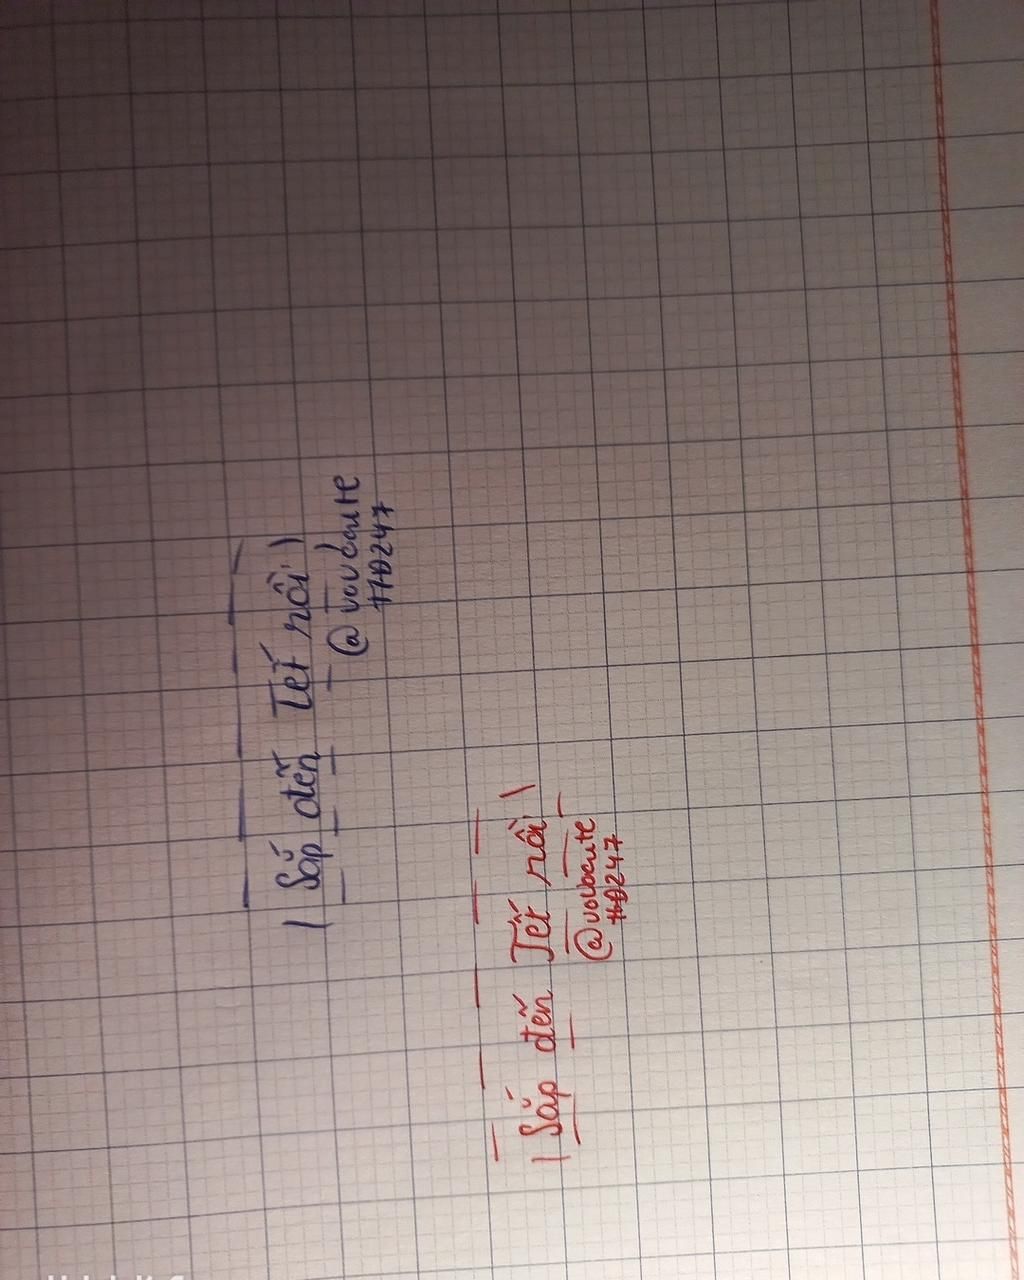 Sắp đến Tết rồi
@voi
#HD247
Sắp đến Tết rồi
@voibacute
#HD247